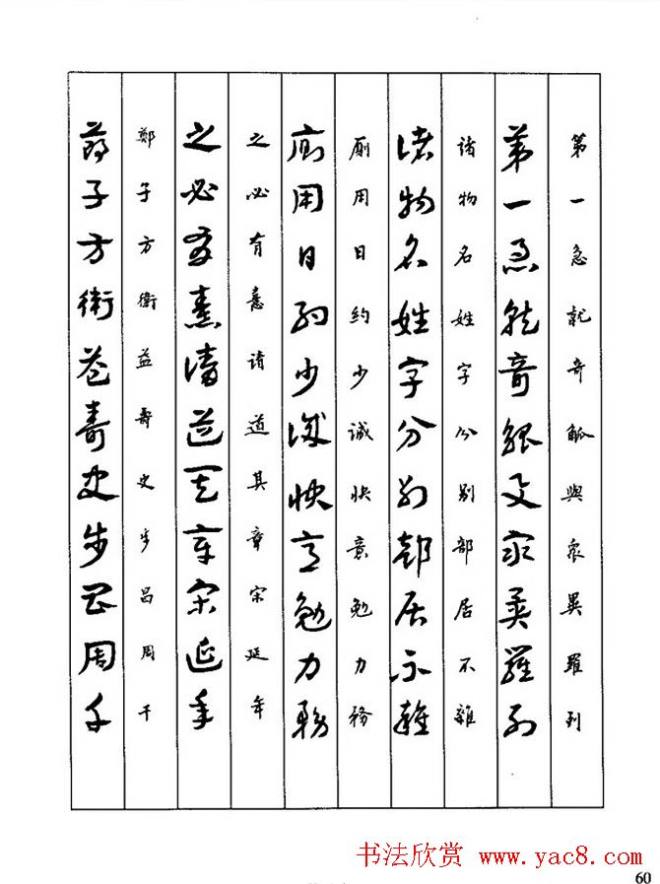 第一急就奇觚與衆異羅列
第一急就奇觚與衆異羅列
諸物名姓字分別部居不雜
諸物名姓字分別部居不雜
廁用日約少誠快意勉力務
廁用日約少誠快意勉力務
之必有憙請道其章宋延年
之必有憙請道其章宋延年
鄭子方衛益壽史步昌周千
鄭子方衛益壽史步昌周千
书法欣赏 www.yac8.com
60